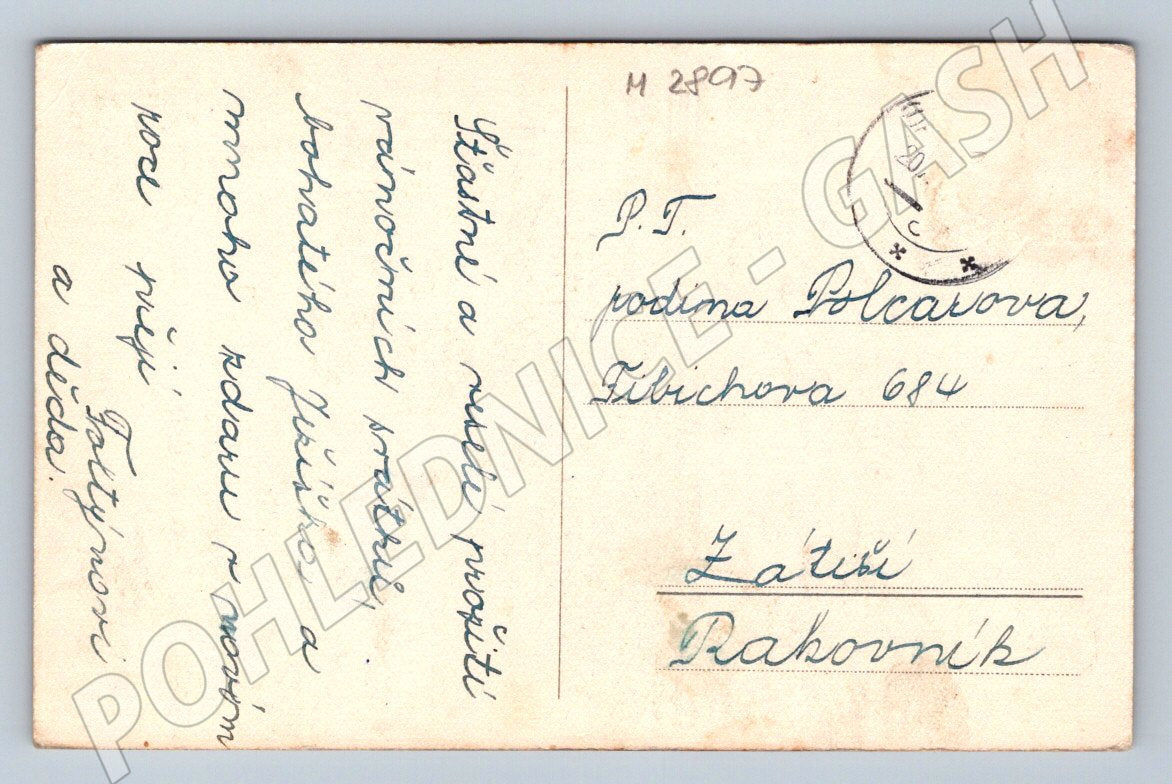 M 2897
P. T.
rodina Polcarova,
Fibichova 684
Zátiší
Rakovník
Šťastné a veselé prožití
vánočních svátků,
bohatého Ježíška a
mnoho zdaru v novém
roce přejí Foltýnovi
a děda.
POHLEDNICE - GASH